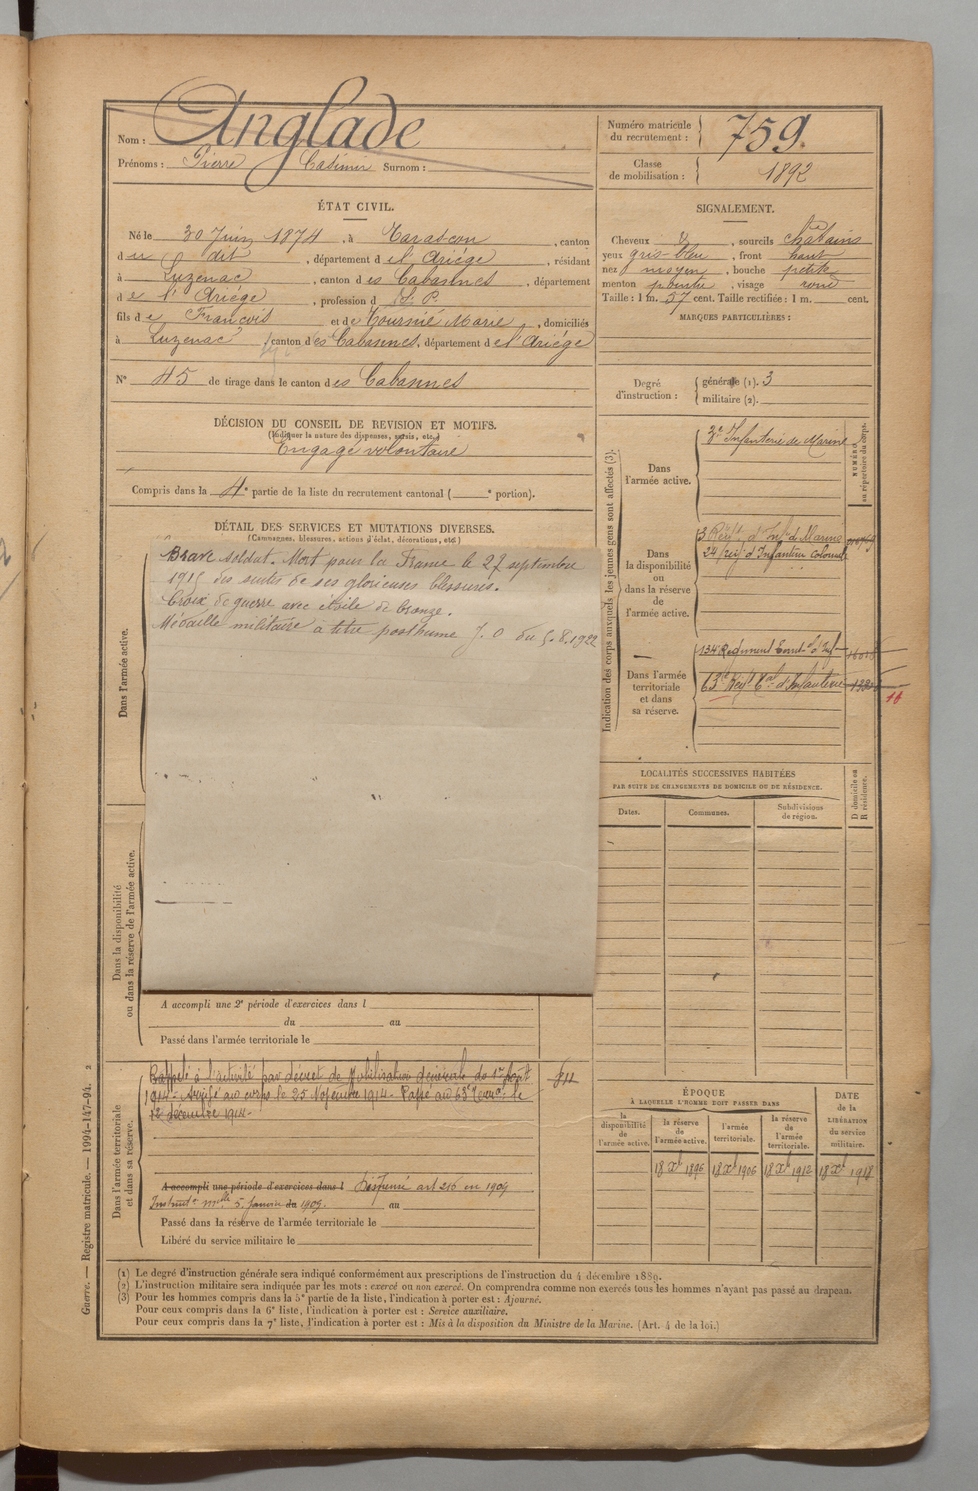 Nom : Anglade
Prénoms : Pierre Casimir Surnom :
Numéro matricule du recrutement : 759.
Classe de mobilisation : 1892
ÉTAT CIVIL.
Né le 30 Juin 1874, à Tarascon, canton
du dit, département de l'Ariége, résidant
à Luzenac, canton des Cabannes, département
de l'Ariége, profession d S. P.
fils de François et de Tournié Marie, domiciliés
à Luzenac, canton des Cabannes, département de l'Ariége
N° 45 de tirage dans le canton des Cabannes
DÉCISION DU CONSEIL DE REVISION ET MOTIFS.
(Indiquer la nature des dispenses, sursis, etc.)
Engagé volontaire
Compris dans la 4e partie de la liste du recrutement cantonal ( e portion).
DÉTAIL DES SERVICES ET MUTATIONS DIVERSES.
(Campagnes, blessures, actions d'éclat, décorations, etc.)
Dans l'armée active.
Brave soldat. Mort pour la France le 27 septembre
1915 des suites de ses glorieuses blessures.
Croix de guerre avec étoile de bronze.
Médaille militaire à titre posthume J. O du 5.8.1922
Dans la disponibilité ou dans la réserve de l'armée active.
A accompli une 2e période d'exercices dans l
du au
Passé dans l'armée territoriale le
Dans l'armée territoriale et dans sa réserve.
Rappelé à l'activité par décret de Mobilisation générale du 1er Août
1914 - Arrivé au corps le 25 Novembre 1914 - Passé au 63e le
12 décembre 1914 -
A accompli une période d'exercices dans l Dispensé art 216 en 1909
5 Janvier du 1909. au
Passé dans la réserve de l'armée territoriale le
Libéré du service militaire le
SIGNALEMENT.
Cheveux, sourcils châtains
yeux gris-bleu, front haut
nez moyen, bouche petite
menton pointu, visage rond
Taille : 1 m. 57 cent. Taille rectifiée : 1 m. cent.
MARQUES PARTICULIÈRES :
Degré d'instruction : générale (1). 3
militaire (2).
Indication des corps auxquels les jeunes gens sont affectés (3).
NUMÉRO au répertoire du corps.
Dans l'armée active.
3e Infanterie de Marine
Dans la disponibilité ou dans la réserve de l'armée active.
3 Régt. d'Inf. d. Marine
24 Régt d'Infanterie coloniale
Dans l'armée territoriale et dans sa réserve.
134 Régiment Territ. d'Inf
63e Régt Tal d'Infanterie
LOCALITÉS SUCCESSIVES HABITÉES
PAR SUITE DE CHANGEMENTS DE DOMICILE OU DE RÉSIDENCE.
Dates. Communes. Subdivisions de région. D domicile ou R résidence.
ÉPOQUE
À LAQUELLE L'HOMME DOIT PASSER DANS
la disponibilité de l'armée active. la réserve de l'armée active. l'armée territoriale. la réserve de l'armée territoriale. DATE de la LIBÉRATION du service militaire.
18 Xbre 1896 18 Xbre 1906 18 Xbre 1912 18 Xbre 1918
(1) Le degré d'instruction générale sera indiqué conformément aux prescriptions de l'instruction du 4 décembre 1889.
(2) L'instruction militaire sera indiquée par les mots : exercé ou non exercé. On comprendra comme non exercés tous les hommes n'ayant pas passé au drapeau.
(3) Pour les hommes compris dans la 5e partie de la liste, l'indication à porter est : Ajourné.
Pour ceux compris dans la 6e liste, l'indication à porter est : Service auxiliaire.
Pour ceux compris dans la 7e liste, l'indication à porter est : Mis à la disposition du Ministre de la Marine. (Art. 4 de la loi.)
Guerre. — Registre matricule. — 1994-147-94. 2